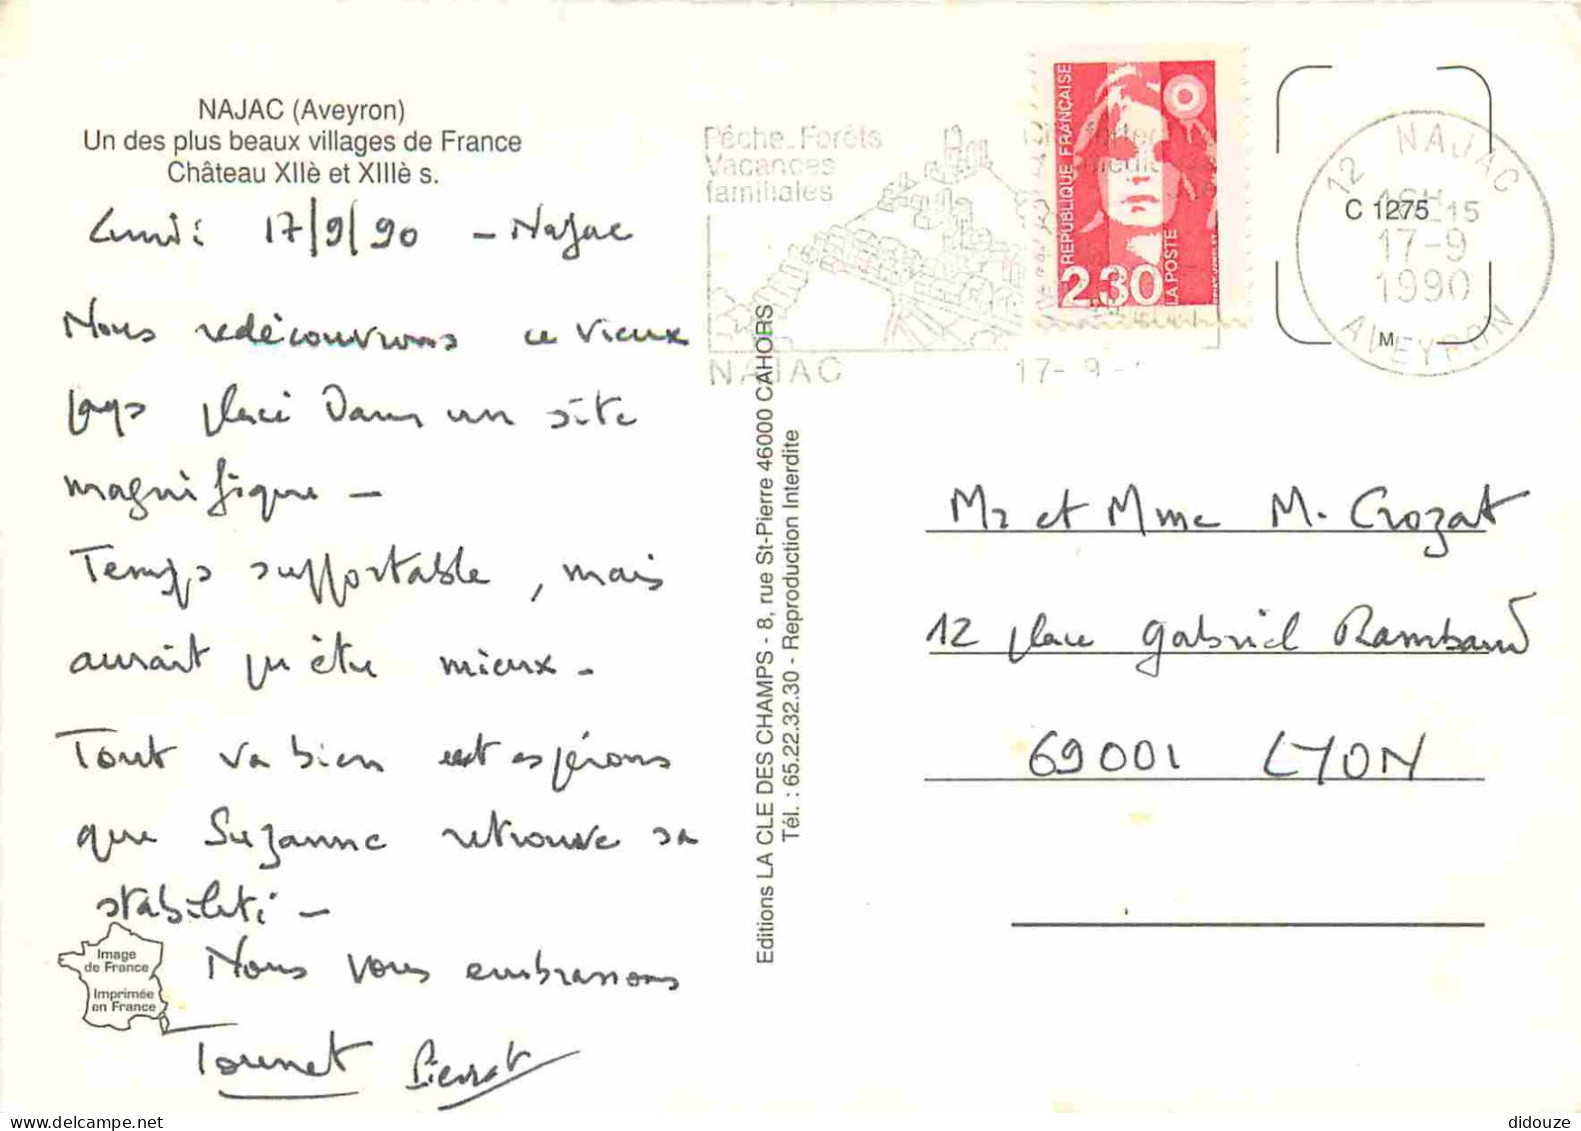 NAJAC (Aveyron)
Un des plus beaux villages de France
Château XIIè et XIIIè s.
Lundi 17/9/90 - Najac
Nous redécouvrons ce vieux
pays placé dans un site
magnifique -
Temps supportable, mais
aurait pu être mieux -
Tout va bien et espérons
que Suzanne retrouve sa
stabilité -
Nous vous embrassons
Image
de France
Imprimée
en France
Editions LA CLE DES CHAMPS - 8, rue St-Pierre 46000 CAHORS
Tél. : 65.22.32.30 - Reproduction Interdite
Pêche_Forêts
Vacances
familiales
NAJAC
17-9-
REPUBLIQUE FRANÇAISE
2,30
LA POSTE
12 NAJAC
16H15
17-9
1990
AVEYRON
C 1275
M
Mr et Mme M. Crozat
12 place Gabriel Rambaud
69001 LYON
didouze